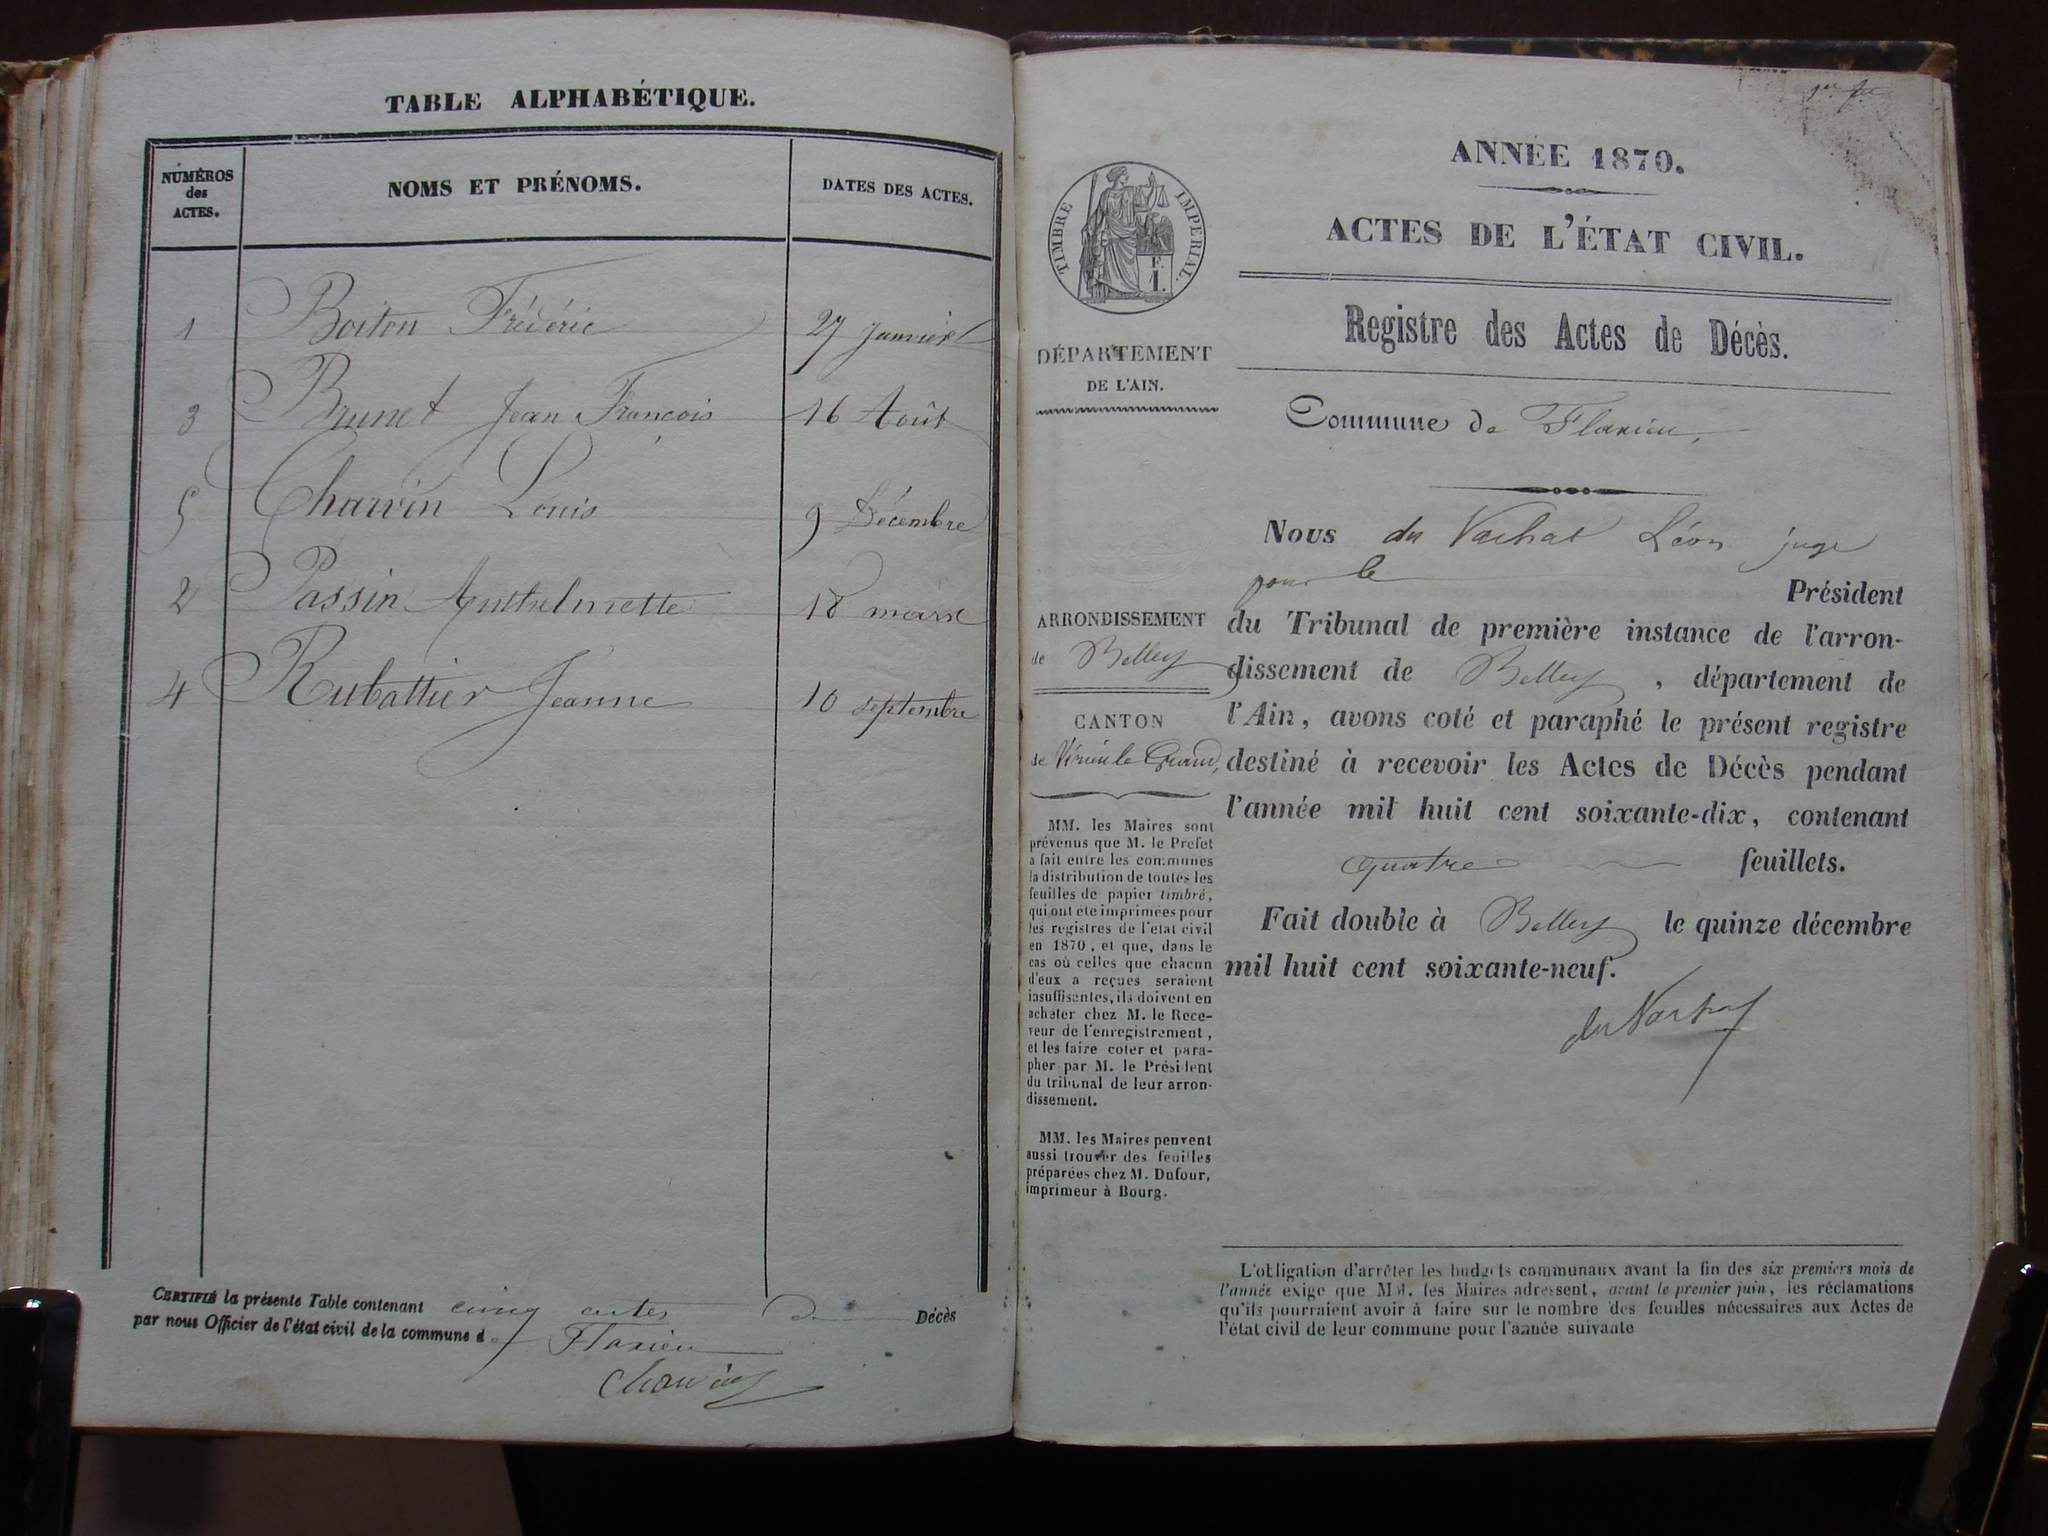 TABLE ALPHABÉTIQUE.
NUMÉROS
des
ACTES.
NOMS ET PRÉNOMS.
DATES DES ACTES.
1 Boiton Frédéric 27 Janvier
3 Brunet Jean François 16 Août
5 Charvin Louis 9 Décembre
2 Passin Anthelmette 18 mars
4 Rubattier Jeanne 10 septembre
CERTIFIÉ la présente Table contenant cinq actes de Décès
par nous Officier de l'état civil de la commune de Flaxieu
Charvin
TIMBRE IMPERIAL.
F.
1.
DÉPARTEMENT
DE L'AIN.
ARRONDISSEMENT
de Belley
CANTON
de Virieu le Grand,
MM. les Maires sont
prévenus que M. le Prefet
a fait entre les communes
la distribution de toutes les
feuilles de papier timbré,
qui ont été imprimées pour
les registres de l'état civil
en 1870, et que, dans le
cas où celles que chacun
d'eux a reçues seraient
insuffisantes, ils doivent en
acheter chez M. le Rece-
veur de l'enregistrement,
et les faire coter et para-
pher par M. le Président
du tribunal de leur arron-
dissement.
MM. les Maires peuvent
aussi trouver des feuilles
préparées chez M. Dufour,
imprimeur à Bourg.
ANNÉE 1870.
ACTES DE L'ÉTAT CIVIL.
Registre des Actes de Décès.
Commune de Flaxieu,
Nous du Vachat Léon juge
pour le Président
du Tribunal de première instance de l'arron-
dissement de Belley, département de
l'Ain, avons coté et paraphé le présent registre
destiné à recevoir les Actes de Décès pendant
l'année mil huit cent soixante-dix, contenant
quatre feuillets.
Fait double à Belley le quinze décembre
mil huit cent soixante-neuf.
du Vachat
L'obligation d'arrêter les budgets communaux avant la fin des six premiers mois de
l'année exige que MM. les Maires adressent, avant le premier juin, les réclamations
qu'ils pourraient avoir à faire sur le nombre des feuilles nécessaires aux Actes de
l'état civil de leur commune pour l'année suivante